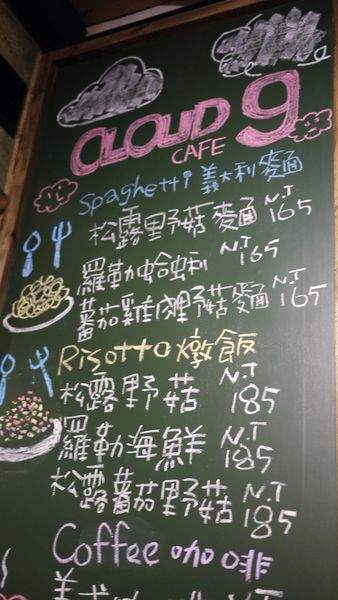 CLOUD 9
CAFE
Spaghetti 義大利麵
松露野菇麵 N.T 165
羅勒蛤蜊 N.T 165
蕃茄雞肉野菇麵 N.T 165
Risotto 燉飯
松露野菇 N.T 185
羅勒海鮮 N.T 185
松露蕃茄野菇 N.T 185
Coffee 咖啡
美式